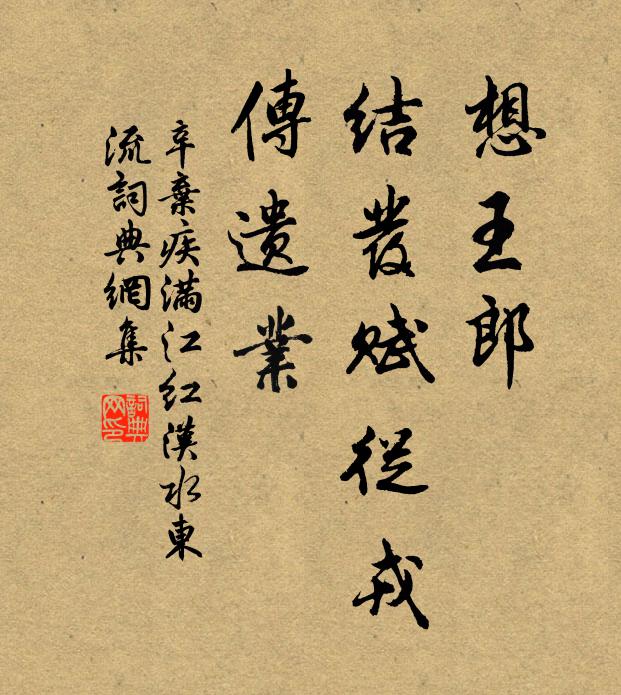 想王郎
結發賦從戎
傳遺業
辛棄疾滿江紅漢水東
流詞典網集
詞典
网印